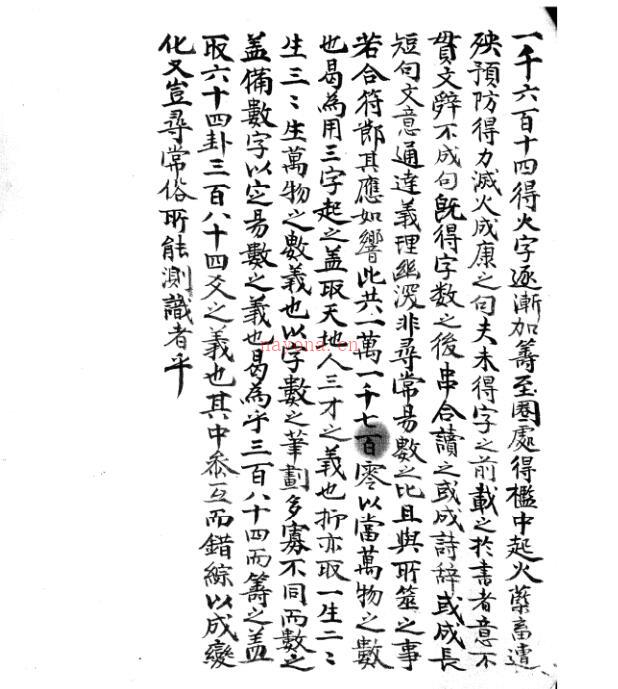 一千六百十四得火字逐漸加籌至圈處得檻中起火藥畜遭
殃預防得力滅火成康之句夫未得字之前載之於書者意不
貫文辭不成句既得字数之後串合讀之或成詩辞或成長
短句文意通達義理幽深非尋常易數之比且與所筮之事
若合符節其應如響此共一萬一千七百零以當萬物之數
也曷為用三字起之盖取天地人三才之義也抑亦取一生二〻
生三〻生萬物之數義也以字數之筆劃多寡不同而數之
盖備數字以定易數之義也曷為乎三百八十四而籌之盖
取六十四卦三百八十四爻之義也其中叅互而錯綜以成變
化又豈尋常俗所能測識者乎
nayona.cn